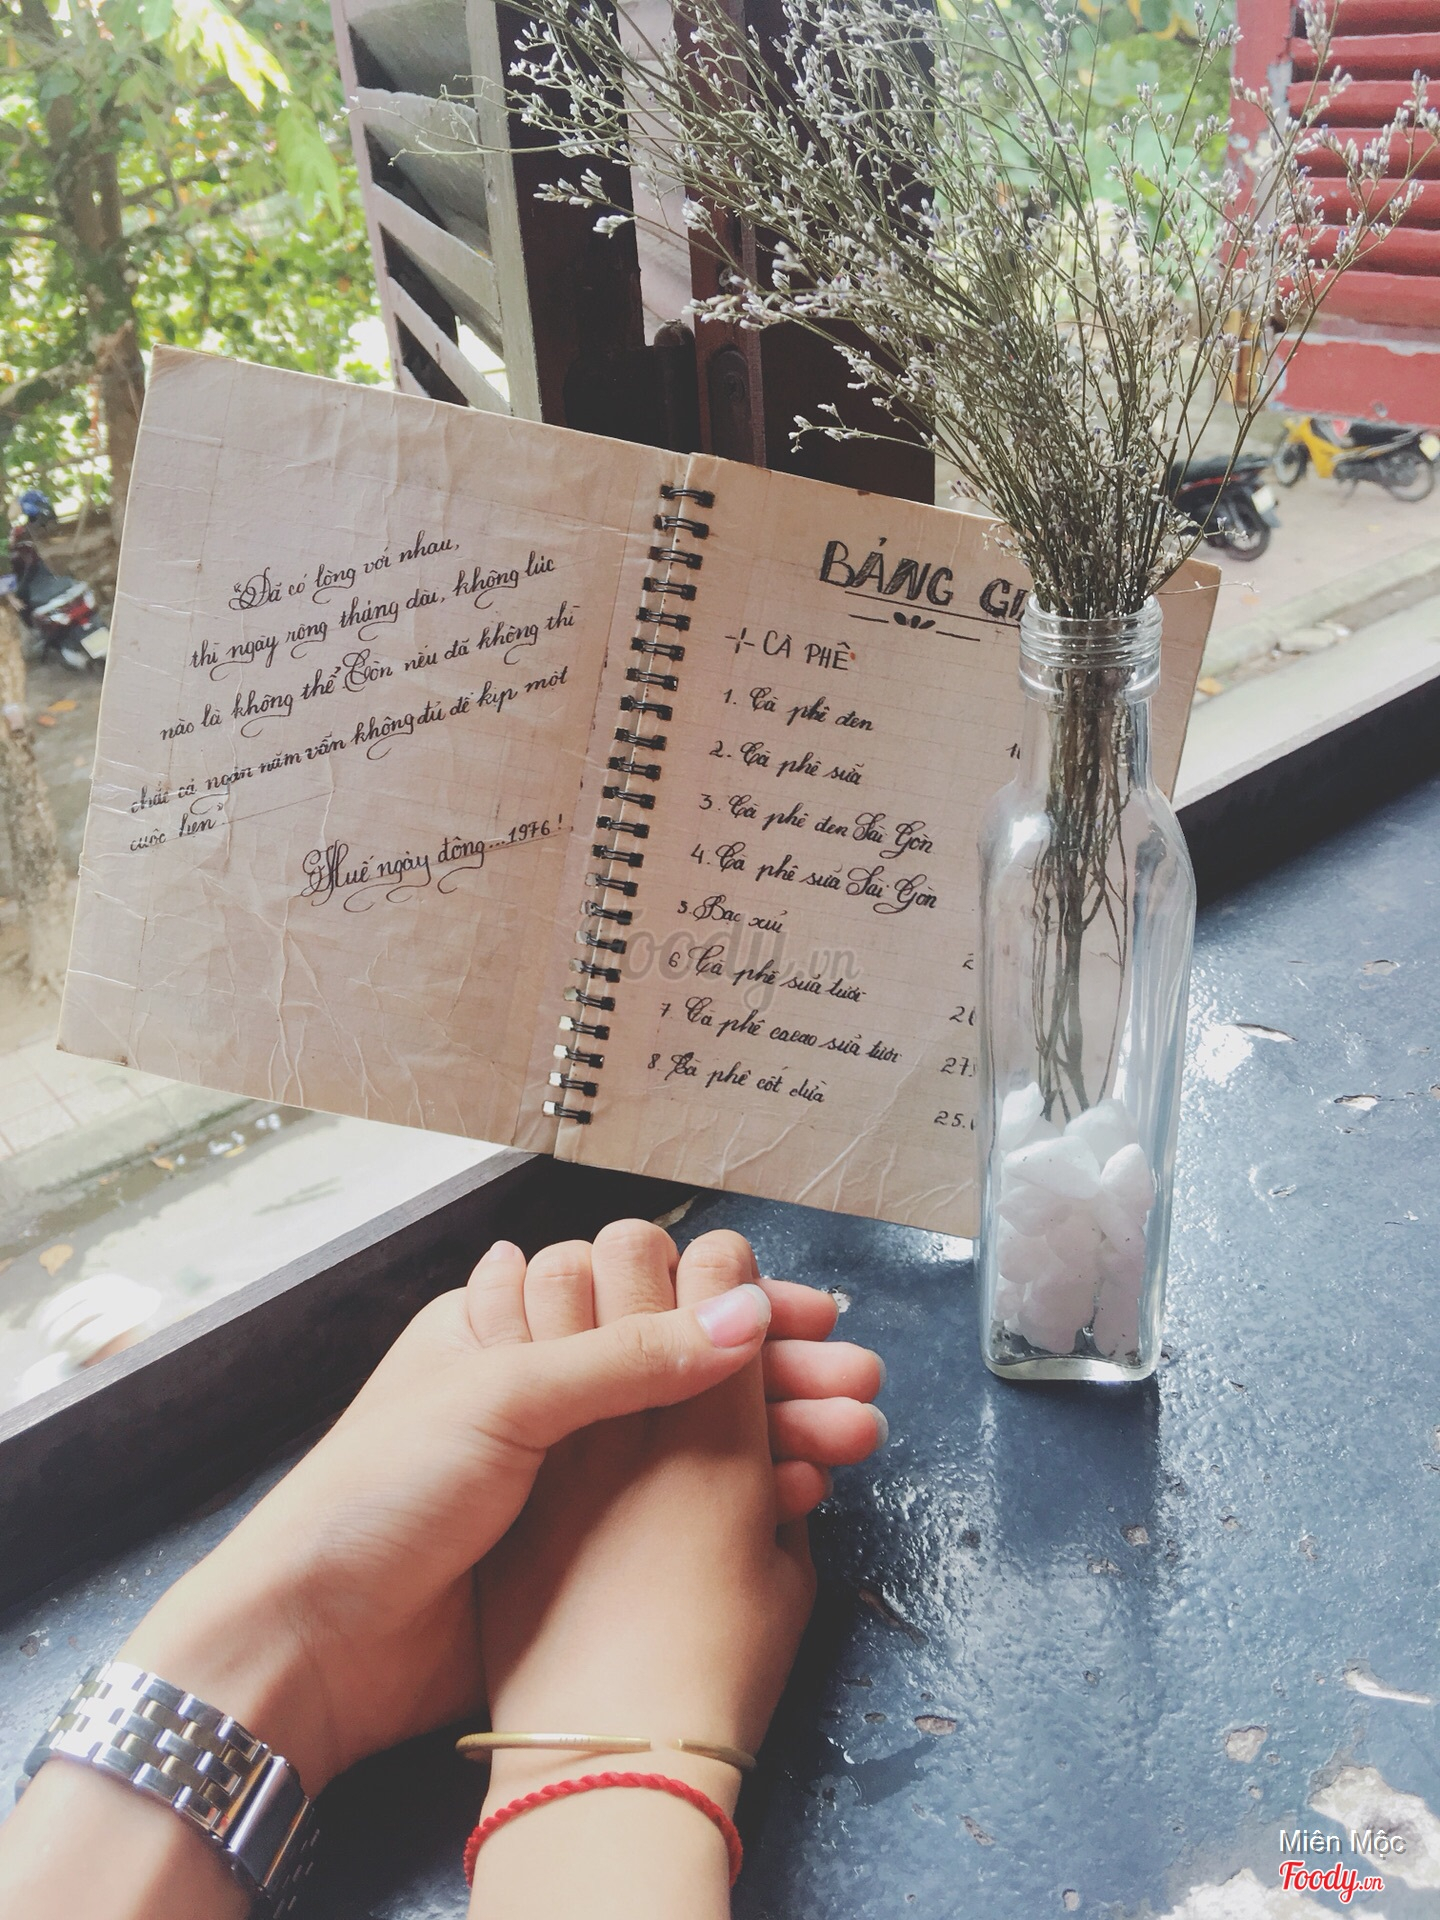 “Đã có lòng với nhau,
thì ngày rộng tháng dài, không lúc
nào là không thể. Còn nếu đã không thì
chắc cả ngàn năm vẫn không đủ để kịp một
cuộc hẹn”
Huế ngày đông...1976!
BẢNG GI
+ CÀ PHÊ
1. Cà phê đen
2. Cà phê sữa
3. Cà phê đen Sài Gòn
4. Cà phê sữa Sài Gòn
5. Bạc xỉu
6. Cà phê sữa tươi
7. Cà phê cacao sữa tươi 27
8. Cà phê cốt dừa 25.
Foody.vn
Miên Mộc
Foody.vn